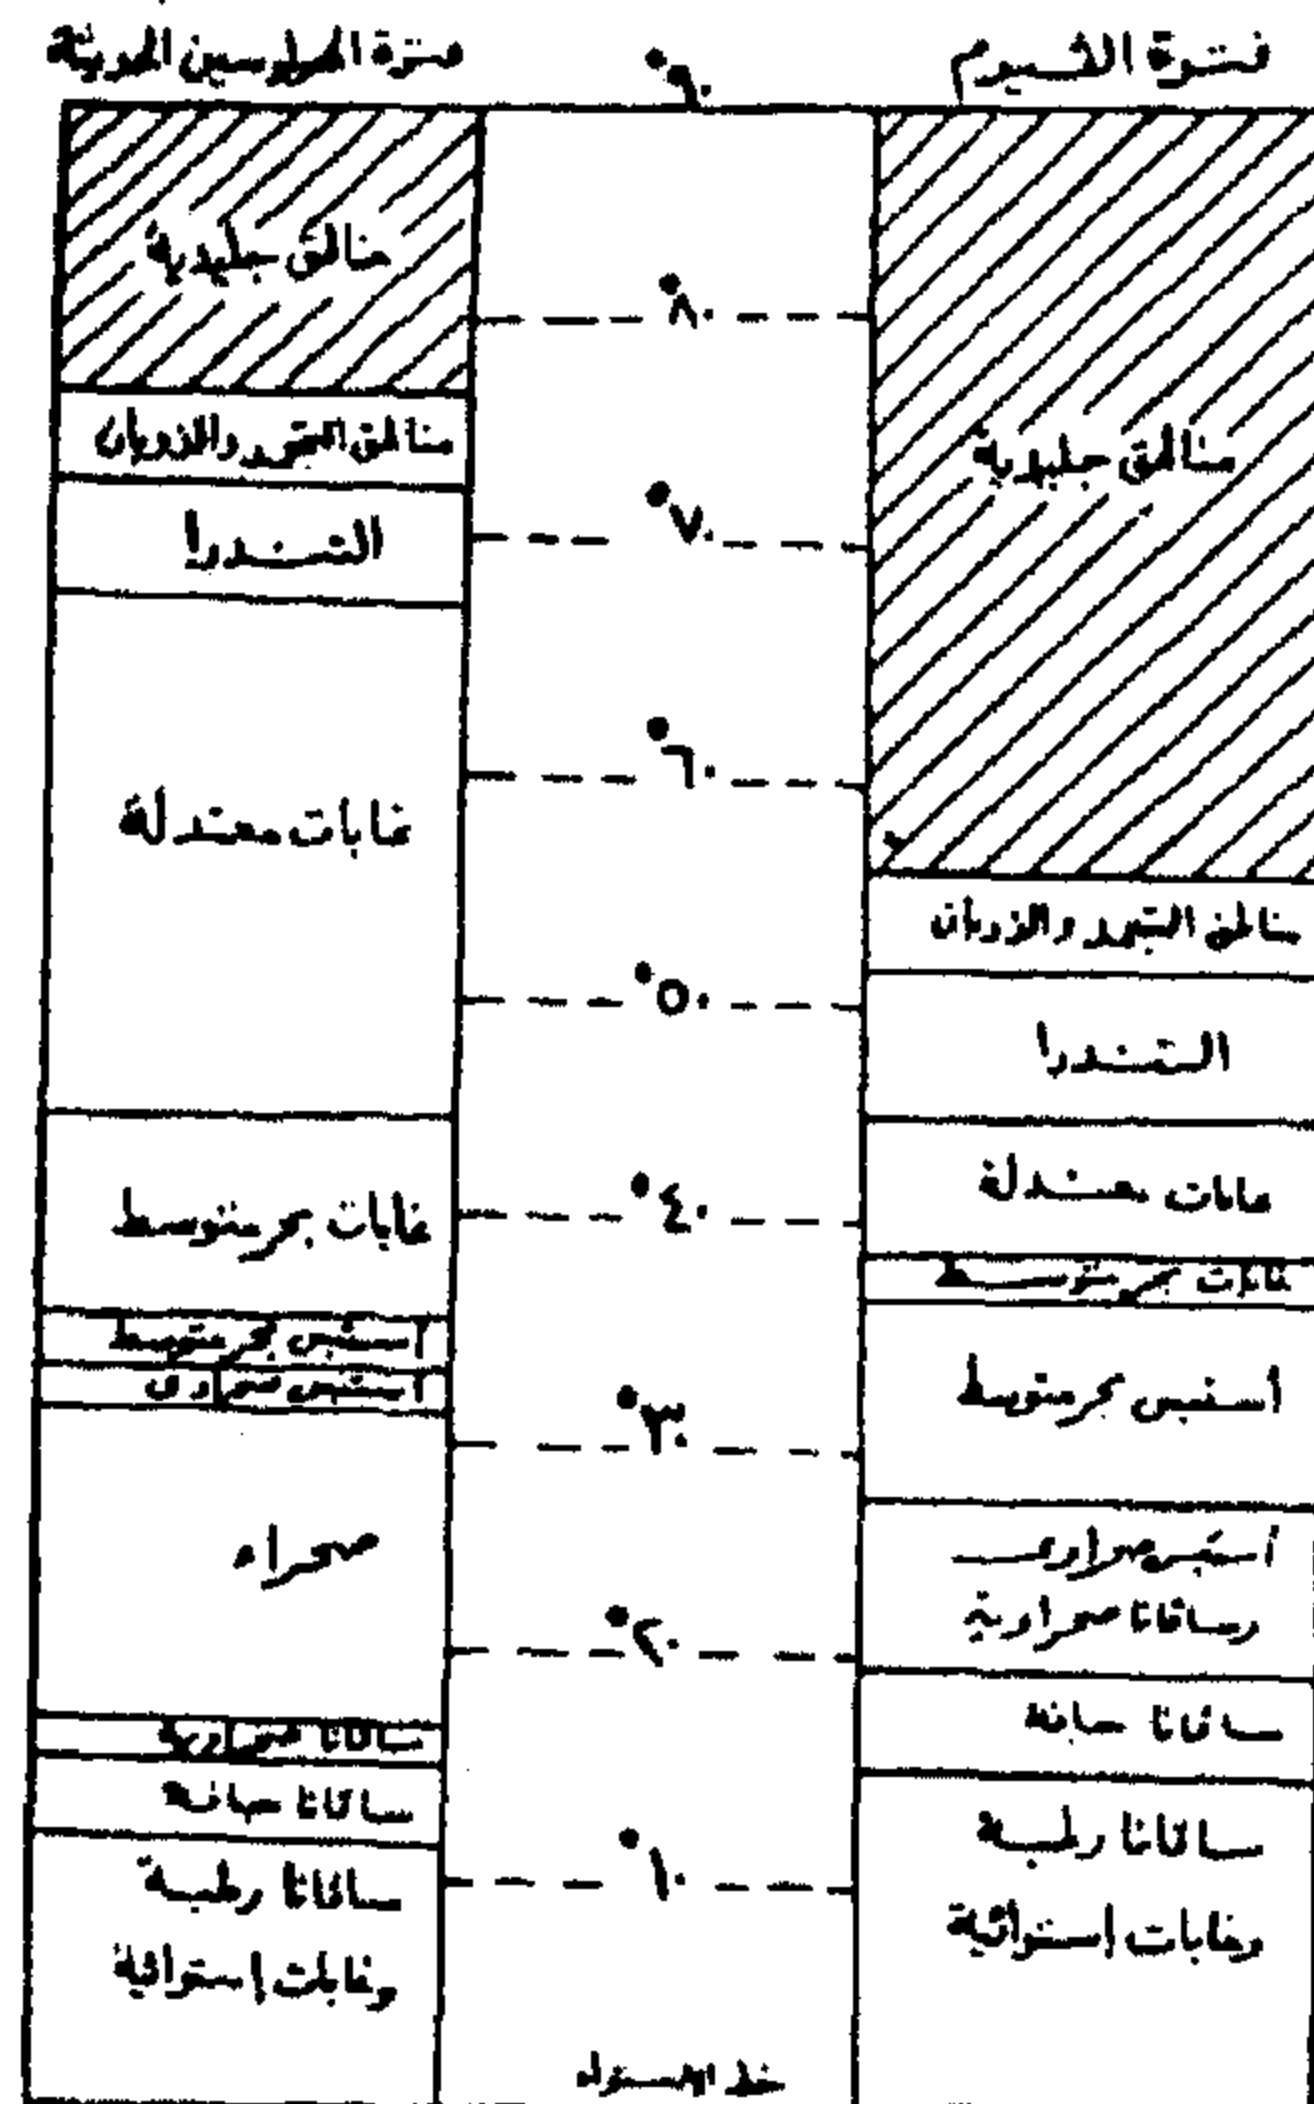 فترة الڤيرم
°٩٠
فترة الهولوسين الحديثة
مناطق جليدية
مناطق التجمد والذوبان
التندرا
غابات معتدلة
غابات بحر متوسط
أستبس بحر متوسط
أستبس صحراوى
وساڤانا صحراوية
ساڤانا جافة
ساڤانا رطبة
وغابات إستوائية
°٨٠
°٧٠
°٦٠
°٥٠
°٤٠
°٣٠
°٢٠
°١٠
خط الاستواء
مناطق جليدية
مناطق التجمد والذوبان
التندرا
غابات معتدلة
غابات بحر متوسط
أستبس بحر متوسط
أستبس صحراوى
صحراء
ساڤانا صحراوية
ساڤانا جافة
ساڤانا رطبة
وغابات إستوائية